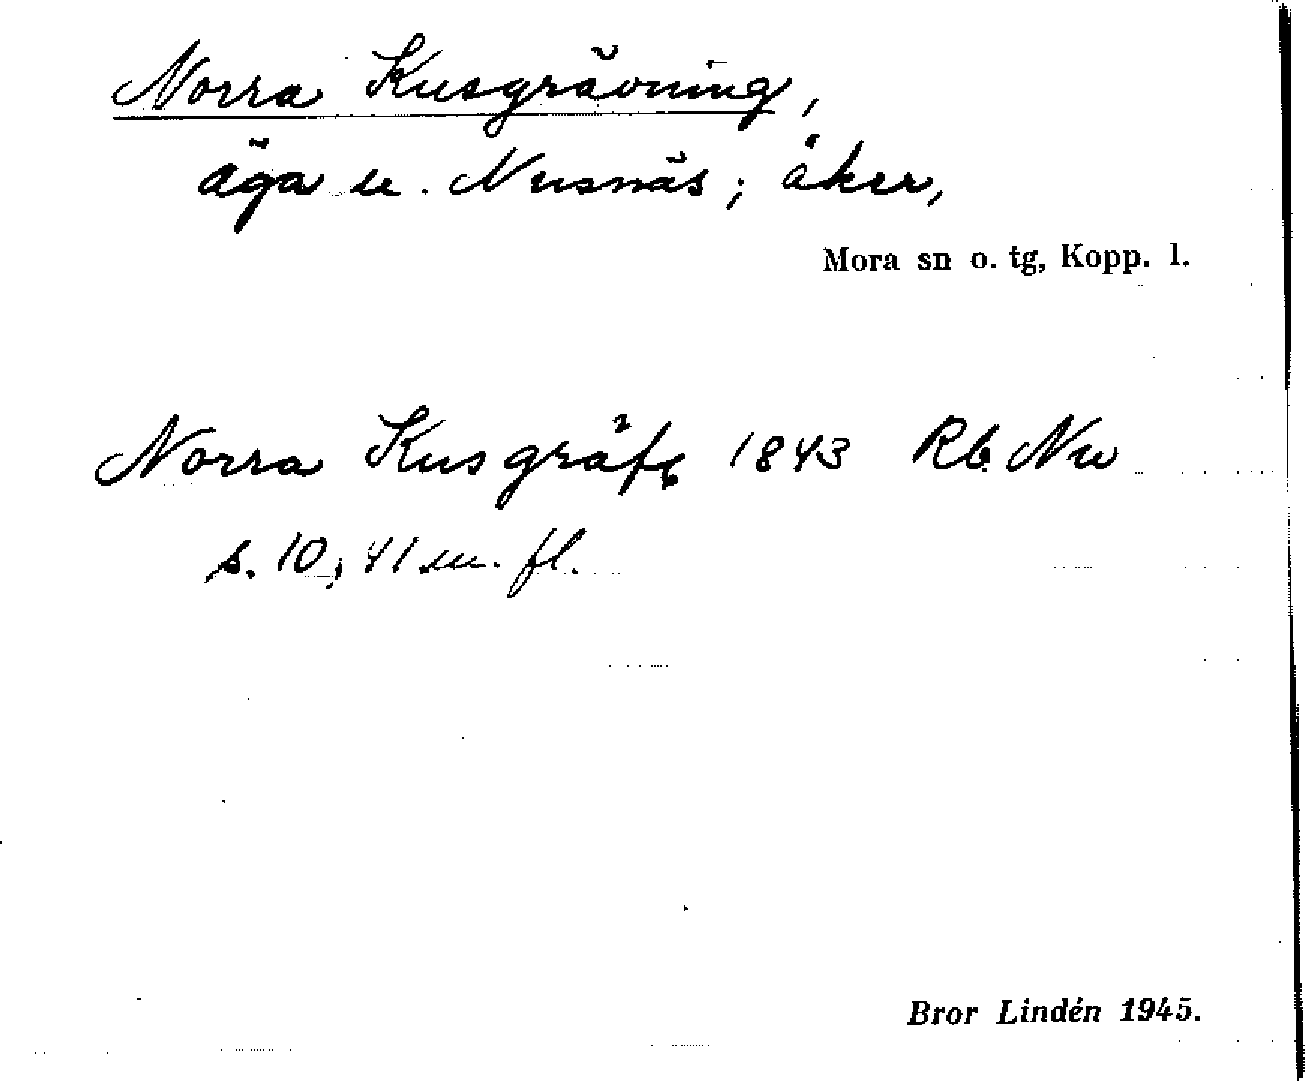 Norra Kusgrävning,
äga u. Nusnäs; åker,
Mora sn o. tg, Kopp. l.
Norra Kusgräfg 1843 Rb Nu
s. 10, 41 m. fl.
Bror Lindén 1945.